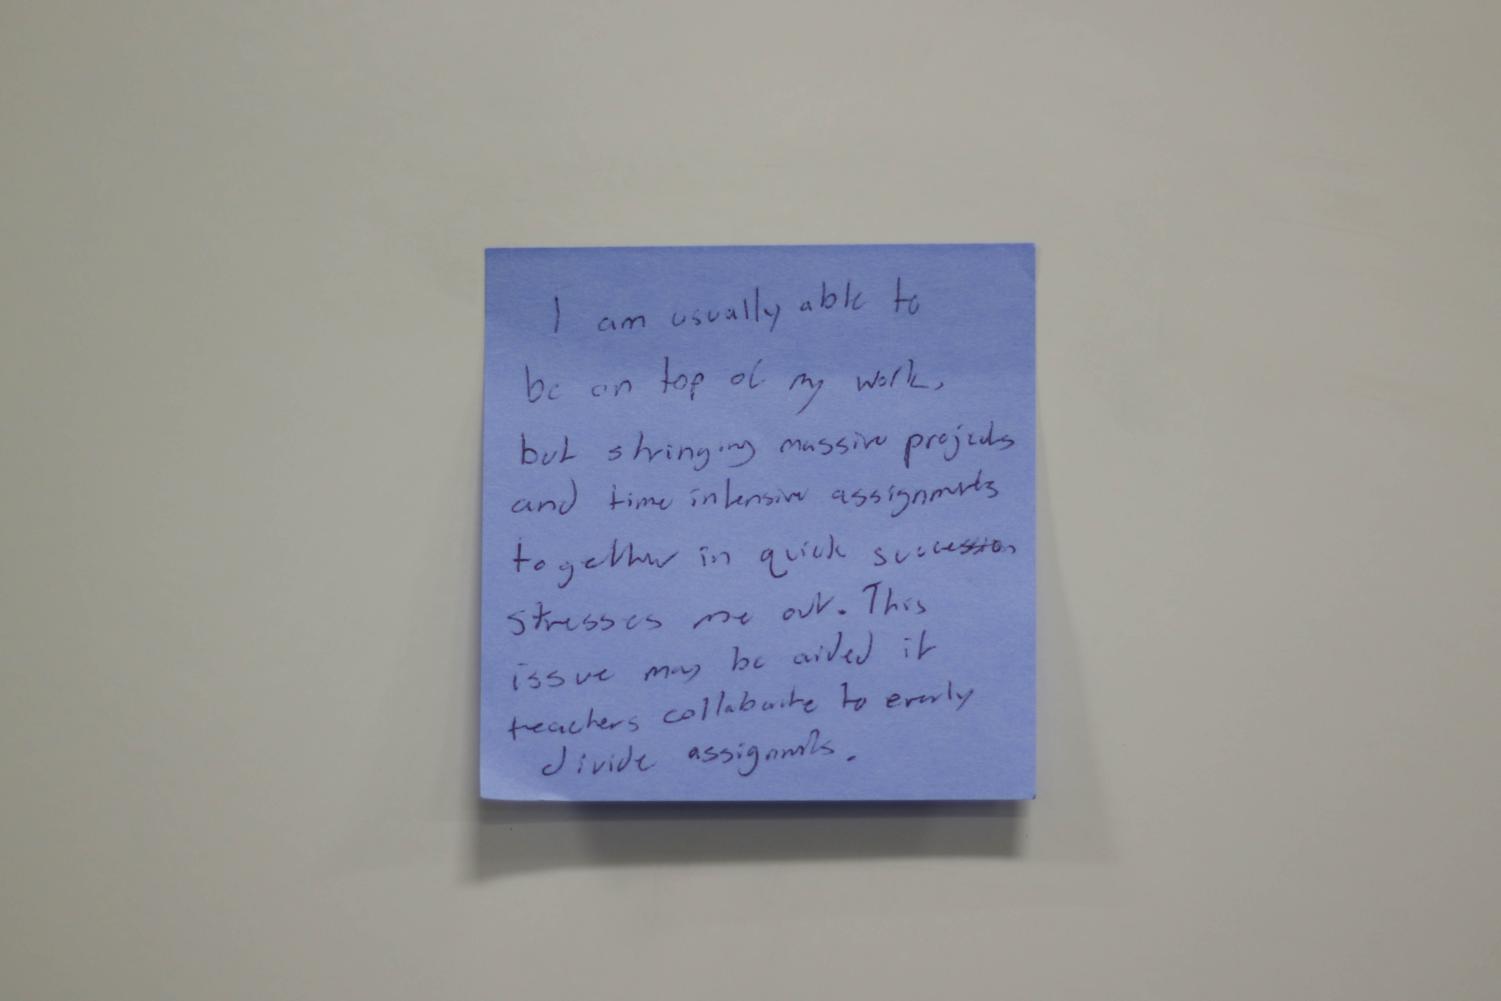 I am usually able to
be on top of my work,
but stringing massive projects
and time intensive assignments
together in quick succession
stresses me out. This
issue may be aided if
teachers collaborate to evenly
divide assignments.